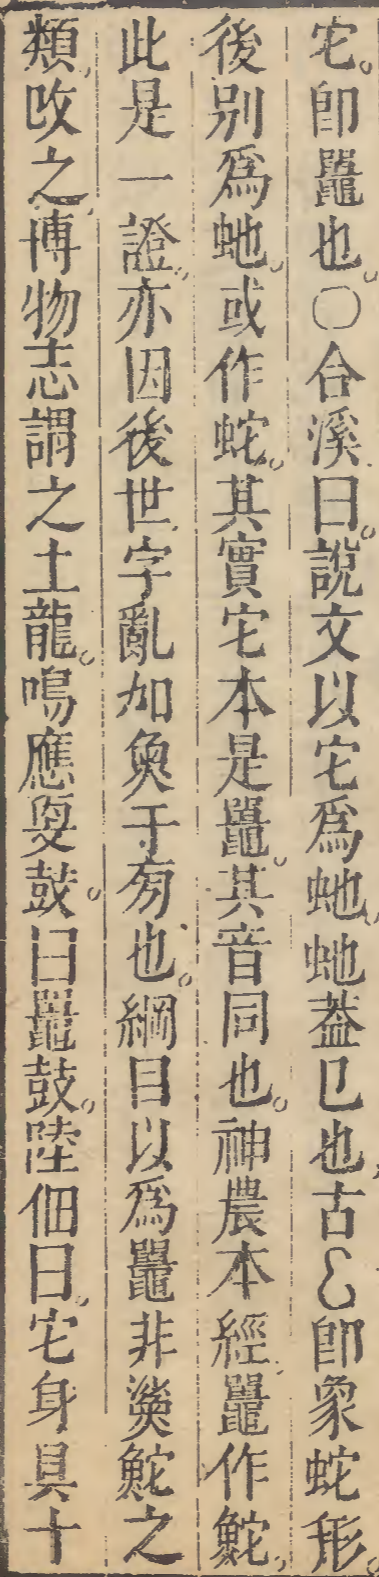 它。卽鼉也。〇合溪曰。說文以它爲虵、虵葢巳也、古𠃉卽象蛇形。
後别爲虵。或作蛇。其實它本是鼉。其音同也。神農本經鼉作鮀、
此是一證。亦因後世字亂加魚于旁也。綱目以爲鼉非漦鮀之
類、改之、博物志謂之土龍。鳴應㪅鼓。曰鼉鼓。陸佃曰、它身具十